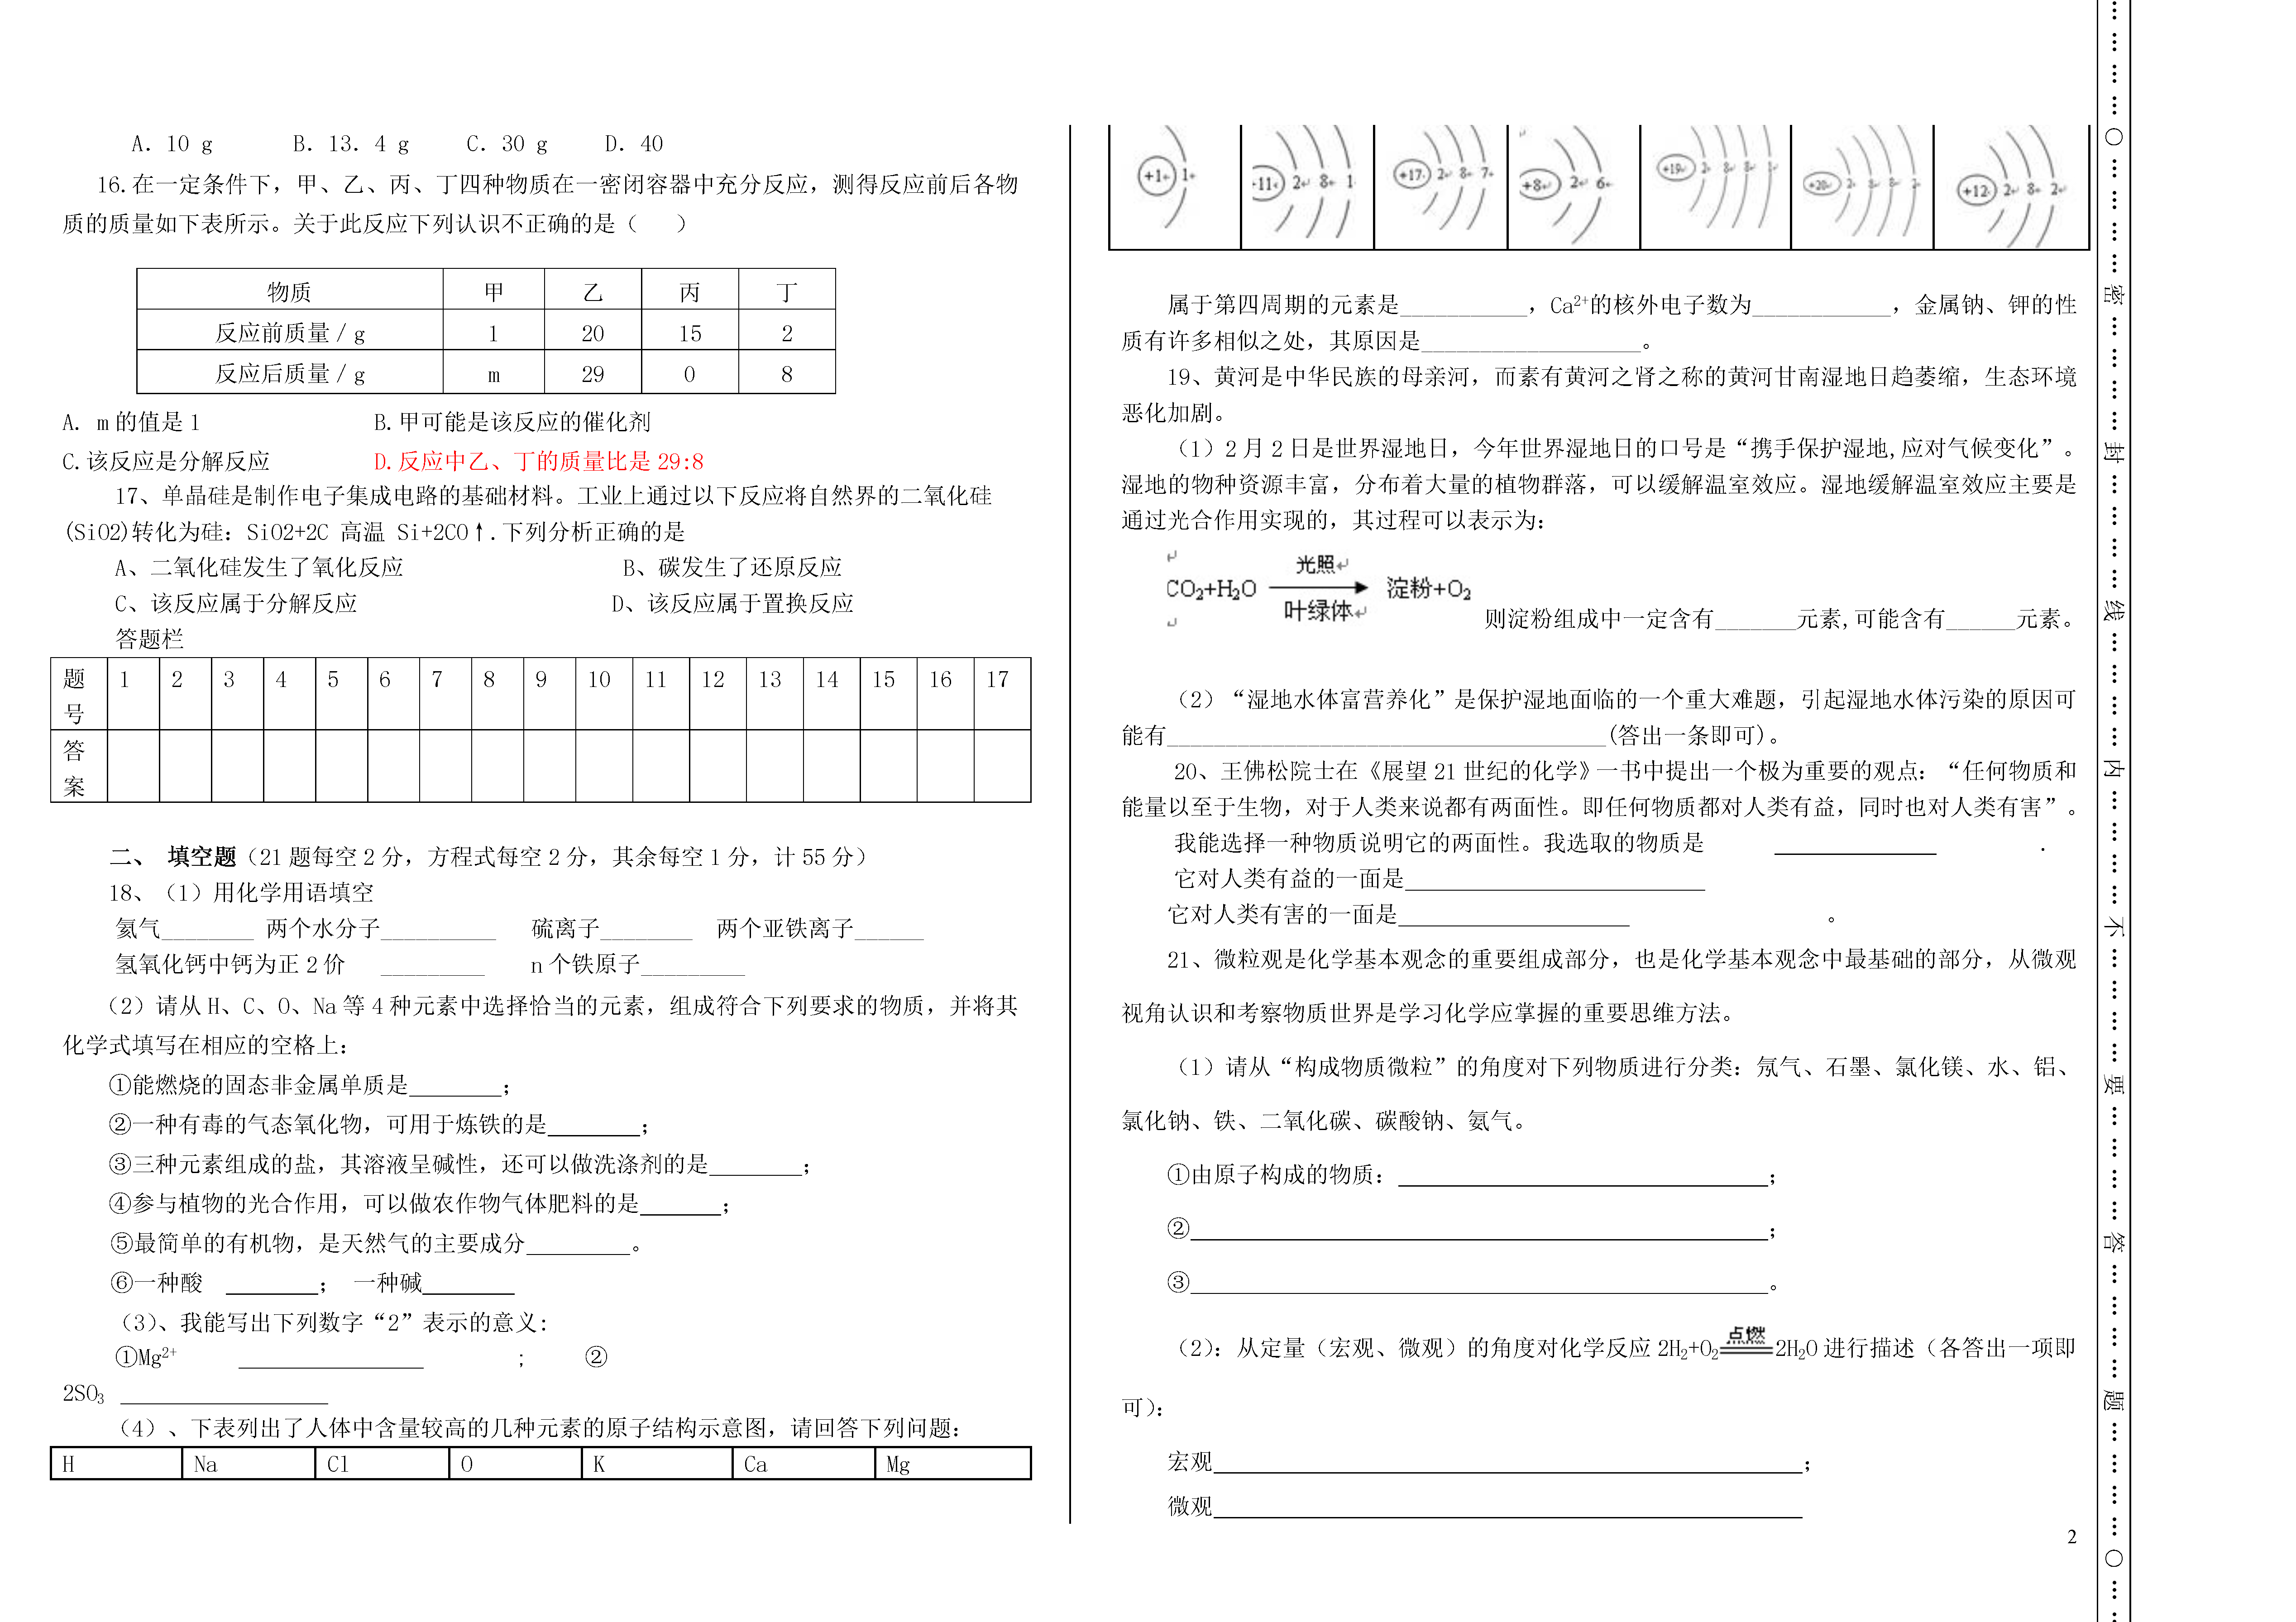 A．10 g B．13．4 g C．30 g D．40
16.在一定条件下，甲、乙、丙、丁四种物质在一密闭容器中充分反应，测得反应前后各物
质的质量如下表所示。关于此反应下列认识不正确的是（ ）
物质 甲 乙 丙 丁
反应前质量／g 1 20 15 2
反应后质量／g m 29 0 8
A. m的值是1 B.甲可能是该反应的催化剂
C.该反应是分解反应 D.反应中乙、丁的质量比是29:8
17、单晶硅是制作电子集成电路的基础材料。工业上通过以下反应将自然界的二氧化硅
(SiO2)转化为硅：SiO2+2C 高温 Si+2CO↑.下列分析正确的是
A、二氧化硅发生了氧化反应 B、碳发生了还原反应
C、该反应属于分解反应 D、该反应属于置换反应
答题栏
题号 1 2 3 4 5 6 7 8 9 10 11 12 13 14 15 16 17
答案
二、 填空题（21题每空2分，方程式每空2分，其余每空1分，计55分）
18、（1）用化学用语填空
氦气________ 两个水分子__________ 硫离子________ 两个亚铁离子______
氢氧化钙中钙为正2价 _________ n个铁原子_________
（2）请从H、C、O、Na等4种元素中选择恰当的元素，组成符合下列要求的物质，并将其
化学式填写在相应的空格上：
①能燃烧的固态非金属单质是________；
②一种有毒的气态氧化物，可用于炼铁的是________；
③三种元素组成的盐，其溶液呈碱性，还可以做洗涤剂的是________；
④参与植物的光合作用，可以做农作物气体肥料的是_______；
⑤最简单的有机物，是天然气的主要成分_________。
⑥一种酸 ________； 一种碱________
（3）、我能写出下列数字“2”表示的意义：
①Mg²⁺ ________________ ； ②
2SO₃ __________________
（4）、下表列出了人体中含量较高的几种元素的原子结构示意图，请回答下列问题：
H Na Cl O K Ca Mg
+1 1 +11 2 8 1 +17 2 8 7 +8 2 6 +19 2 8 8 1 +20 2 8 8 2 +12 2 8 2
属于第四周期的元素是___________，Ca²⁺的核外电子数为____________，金属钠、钾的性
质有许多相似之处，其原因是___________________。
19、黄河是中华民族的母亲河，而素有黄河之肾之称的黄河甘南湿地日趋萎缩，生态环境
恶化加剧。
（1）2月2日是世界湿地日，今年世界湿地日的口号是“携手保护湿地,应对气候变化”。
湿地的物种资源丰富，分布着大量的植物群落，可以缓解温室效应。湿地缓解温室效应主要是
通过光合作用实现的，其过程可以表示为：
光照
CO₂+H₂O ⟶ 淀粉+O₂
叶绿体
则淀粉组成中一定含有_______元素,可能含有______元素。
（2）“湿地水体富营养化”是保护湿地面临的一个重大难题，引起湿地水体污染的原因可
能有______________________________________(答出一条即可)。
20、王佛松院士在《展望21世纪的化学》一书中提出一个极为重要的观点：“任何物质和
能量以至于生物，对于人类来说都有两面性。即任何物质都对人类有益，同时也对人类有害”。
我能选择一种物质说明它的两面性。我选取的物质是 ______________ .
它对人类有益的一面是__________________________
它对人类有害的一面是____________________ 。
21、微粒观是化学基本观念的重要组成部分，也是化学基本观念中最基础的部分，从微观
视角认识和考察物质世界是学习化学应掌握的重要思维方法。
（1）请从“构成物质微粒”的角度对下列物质进行分类：氖气、石墨、氯化镁、水、铝、
氯化钠、铁、二氧化碳、碳酸钠、氨气。
①由原子构成的物质：________________________________；
②__________________________________________________；
③__________________________________________________。
（2）：从定量（宏观、微观）的角度对化学反应2H₂+O₂ 点燃 2H₂O进行描述（各答出一项即
可）：
宏观___________________________________________________；
微观___________________________________________________
2
密 封 线 内 不 要 答 题